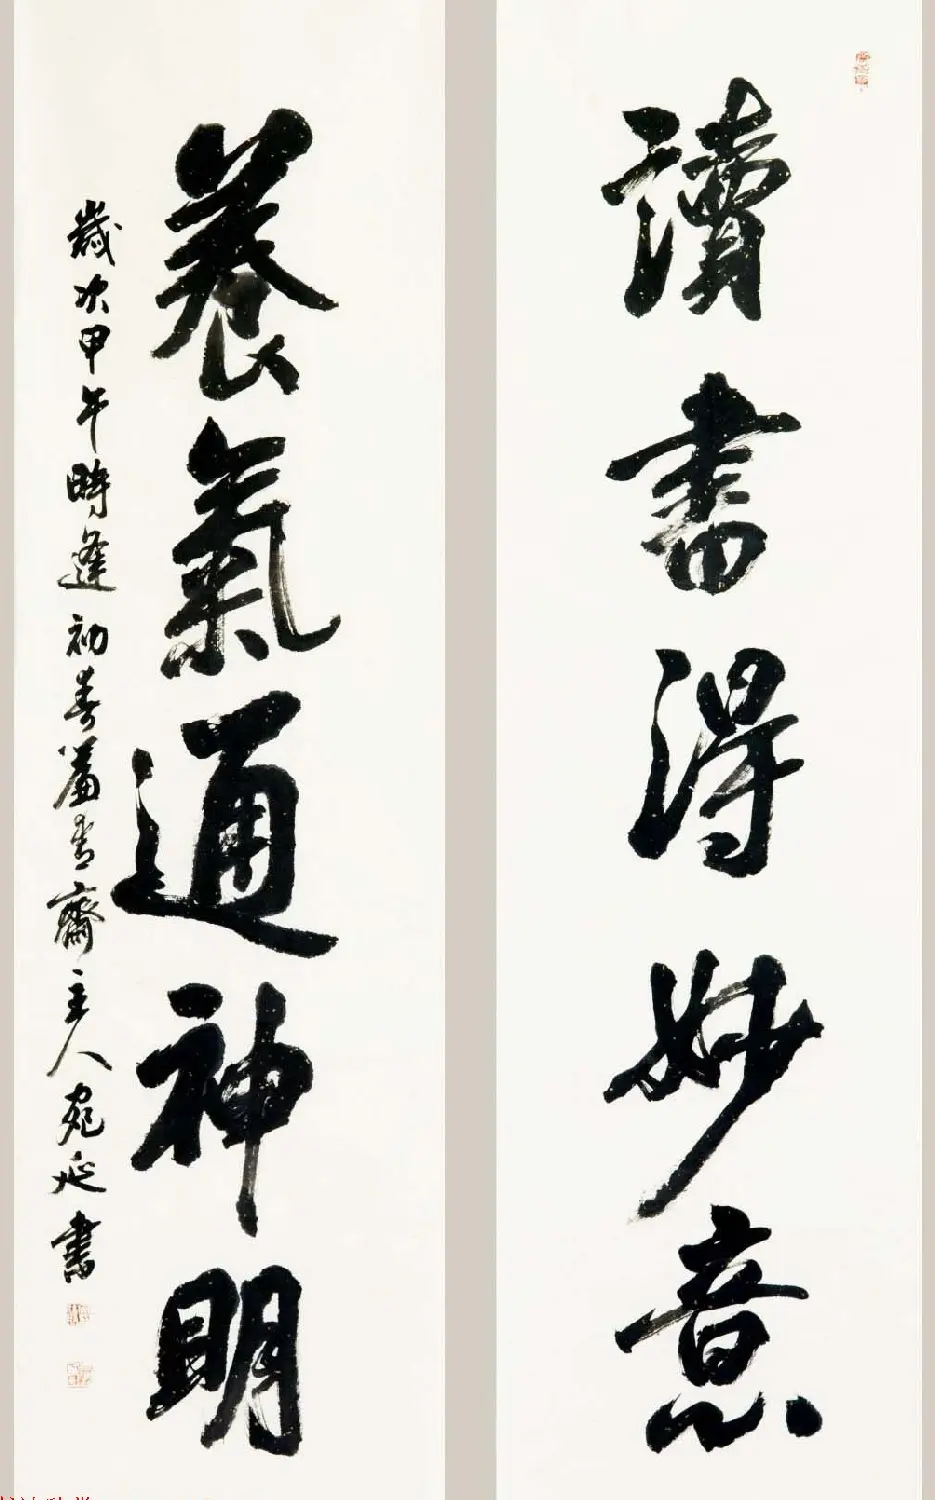 讀書得妙意
養氣通神明
歲次甲午時逢初春簾青齋主人宛延書